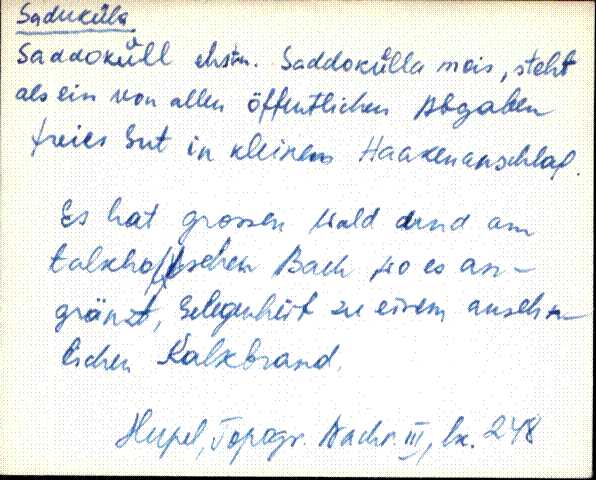 Saduküla
Saddoküll ehstn. Saddokülla mois, steht
als ein von allen öffentlichen Abgaben
freies Gut in kleinem Haakenanschlag.
Es hat grossen Wald und am
talkhofschen Bach wo es an-
gränzt, Gelegenheit zu einem ansehn-
lichen Kalkbrand.
Hupel, Topogr. Nachr. III, lk. 248